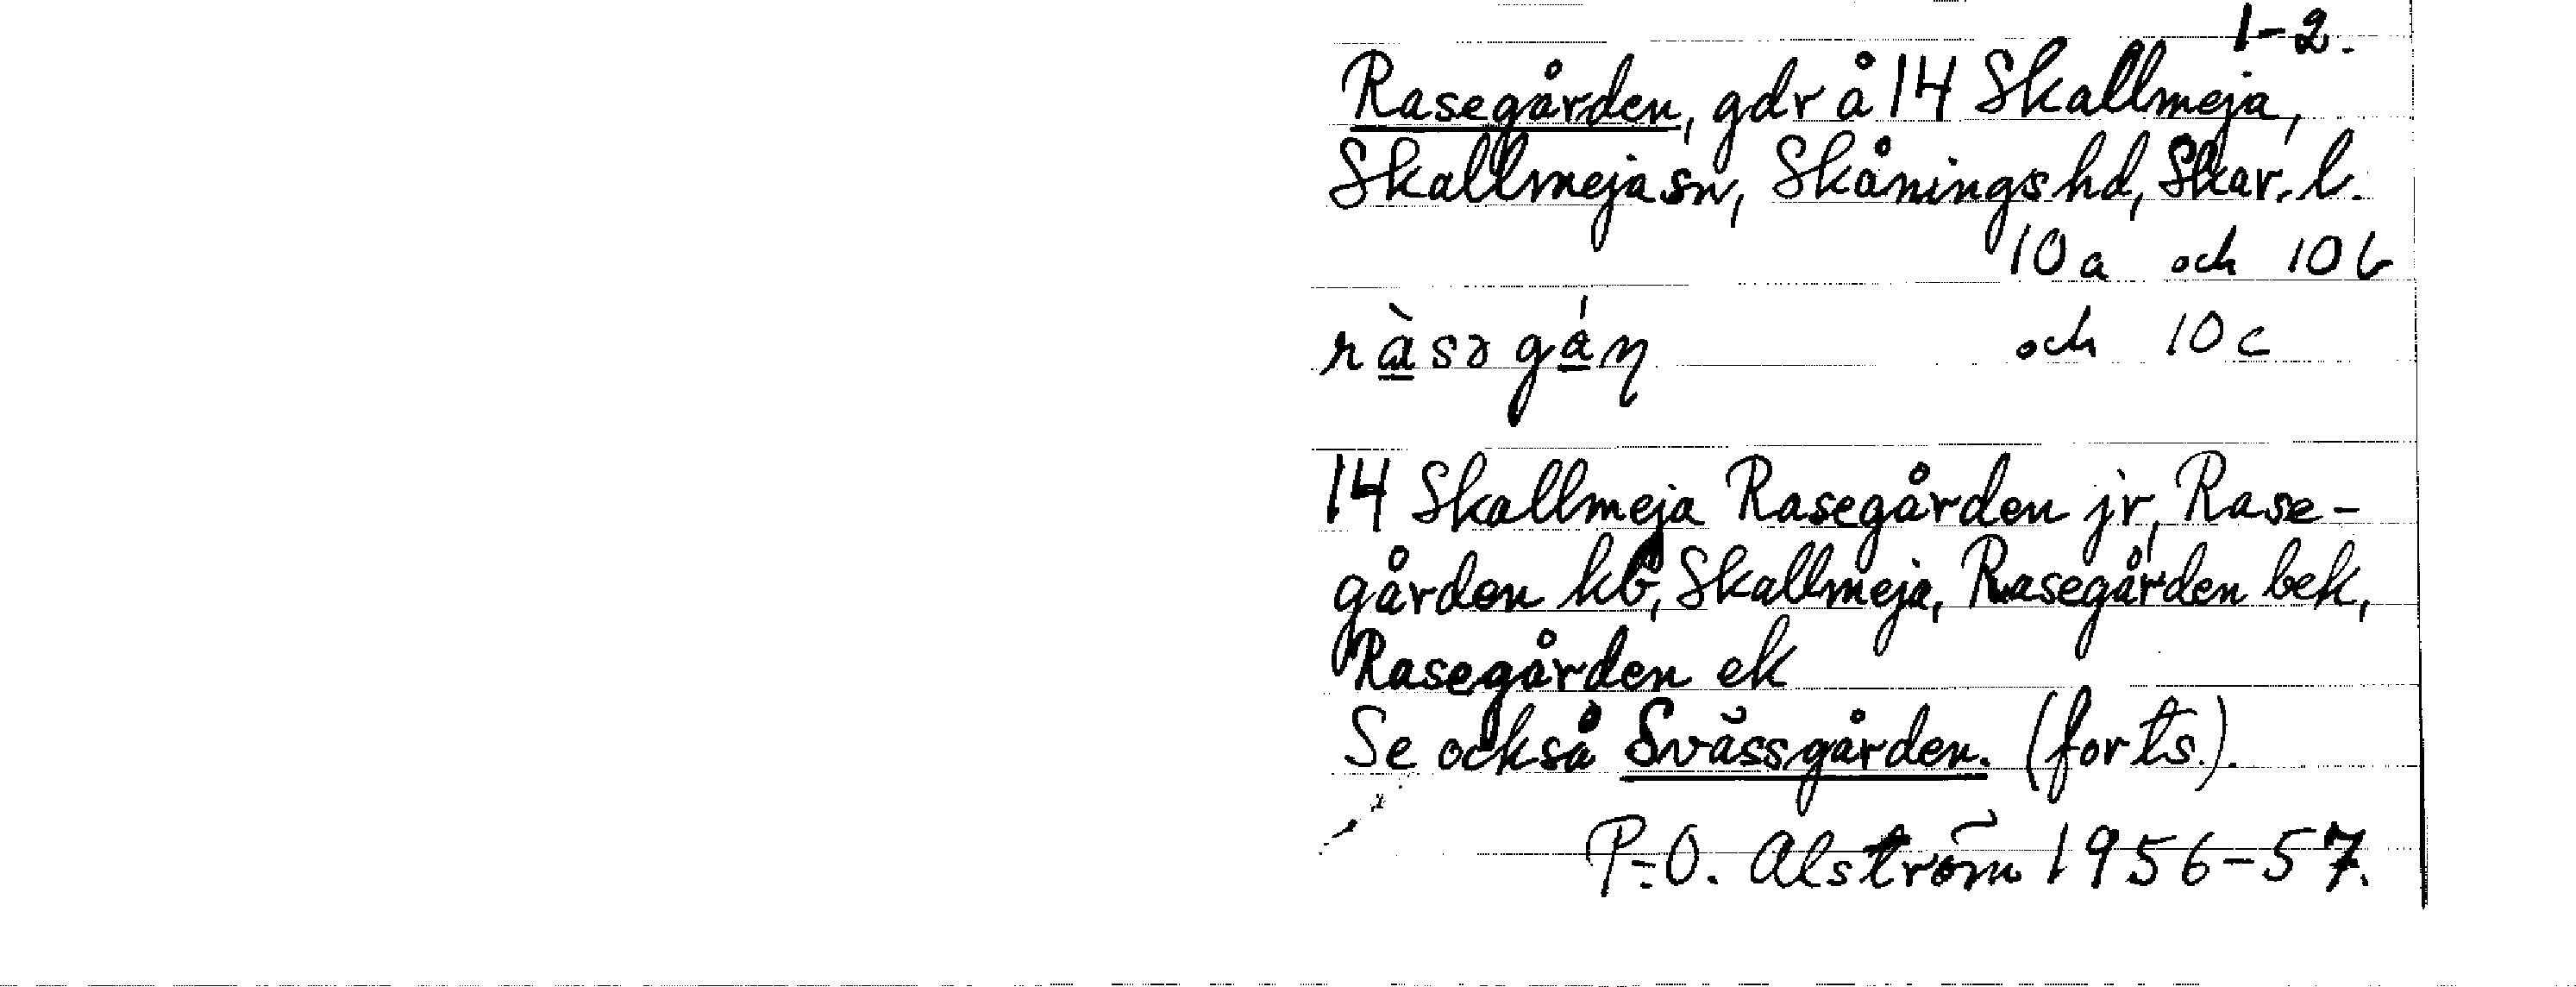 1-2.
Rasegården, gdr å 14 Skallmeja,
Skallmeja sn, Skånings hd, Skar. l.
10a och 10b
och 10c
14 Skallmeja Rasegården jr, Rase-
gården kb, Skallmeja, Rasegården bek,
Rasegården ek
Se också Svässgården. (forts.).
P.-O. Alström 1956-57.